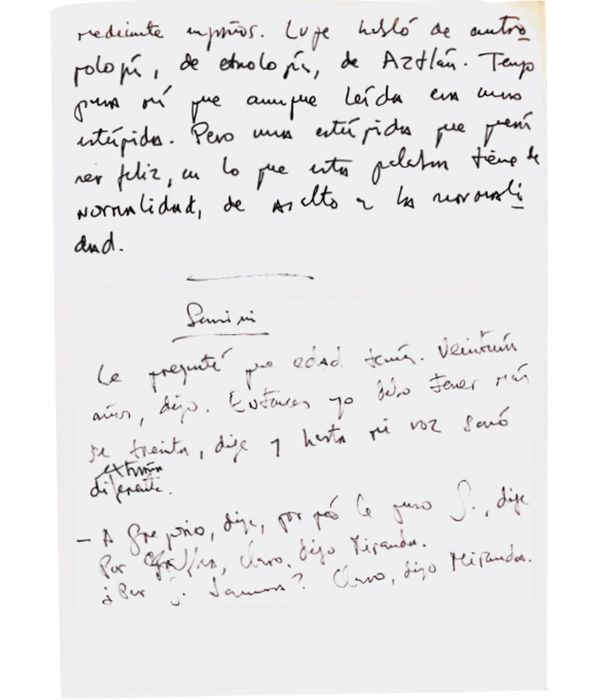 mediante espías. Lupe habló de antro
pología, de etnología, de Aztlán. Tengo
para mí que aunque leída era una
estúpida. Pero una estúpida que quería
ser feliz, en lo que esta palabra tiene de
normalidad, de asalto a la normali
dad.
Le pregunté que edad tenía. Veintiún
años, dijo. Entonces yo debo tener más
de treinta, dije y hasta mi voz sonó
extraña
diferente.
– A Gregorio, dije, por qué le puso G., dije
Por claro, dijo Miranda.
¿Por Claro, dijo Miranda.